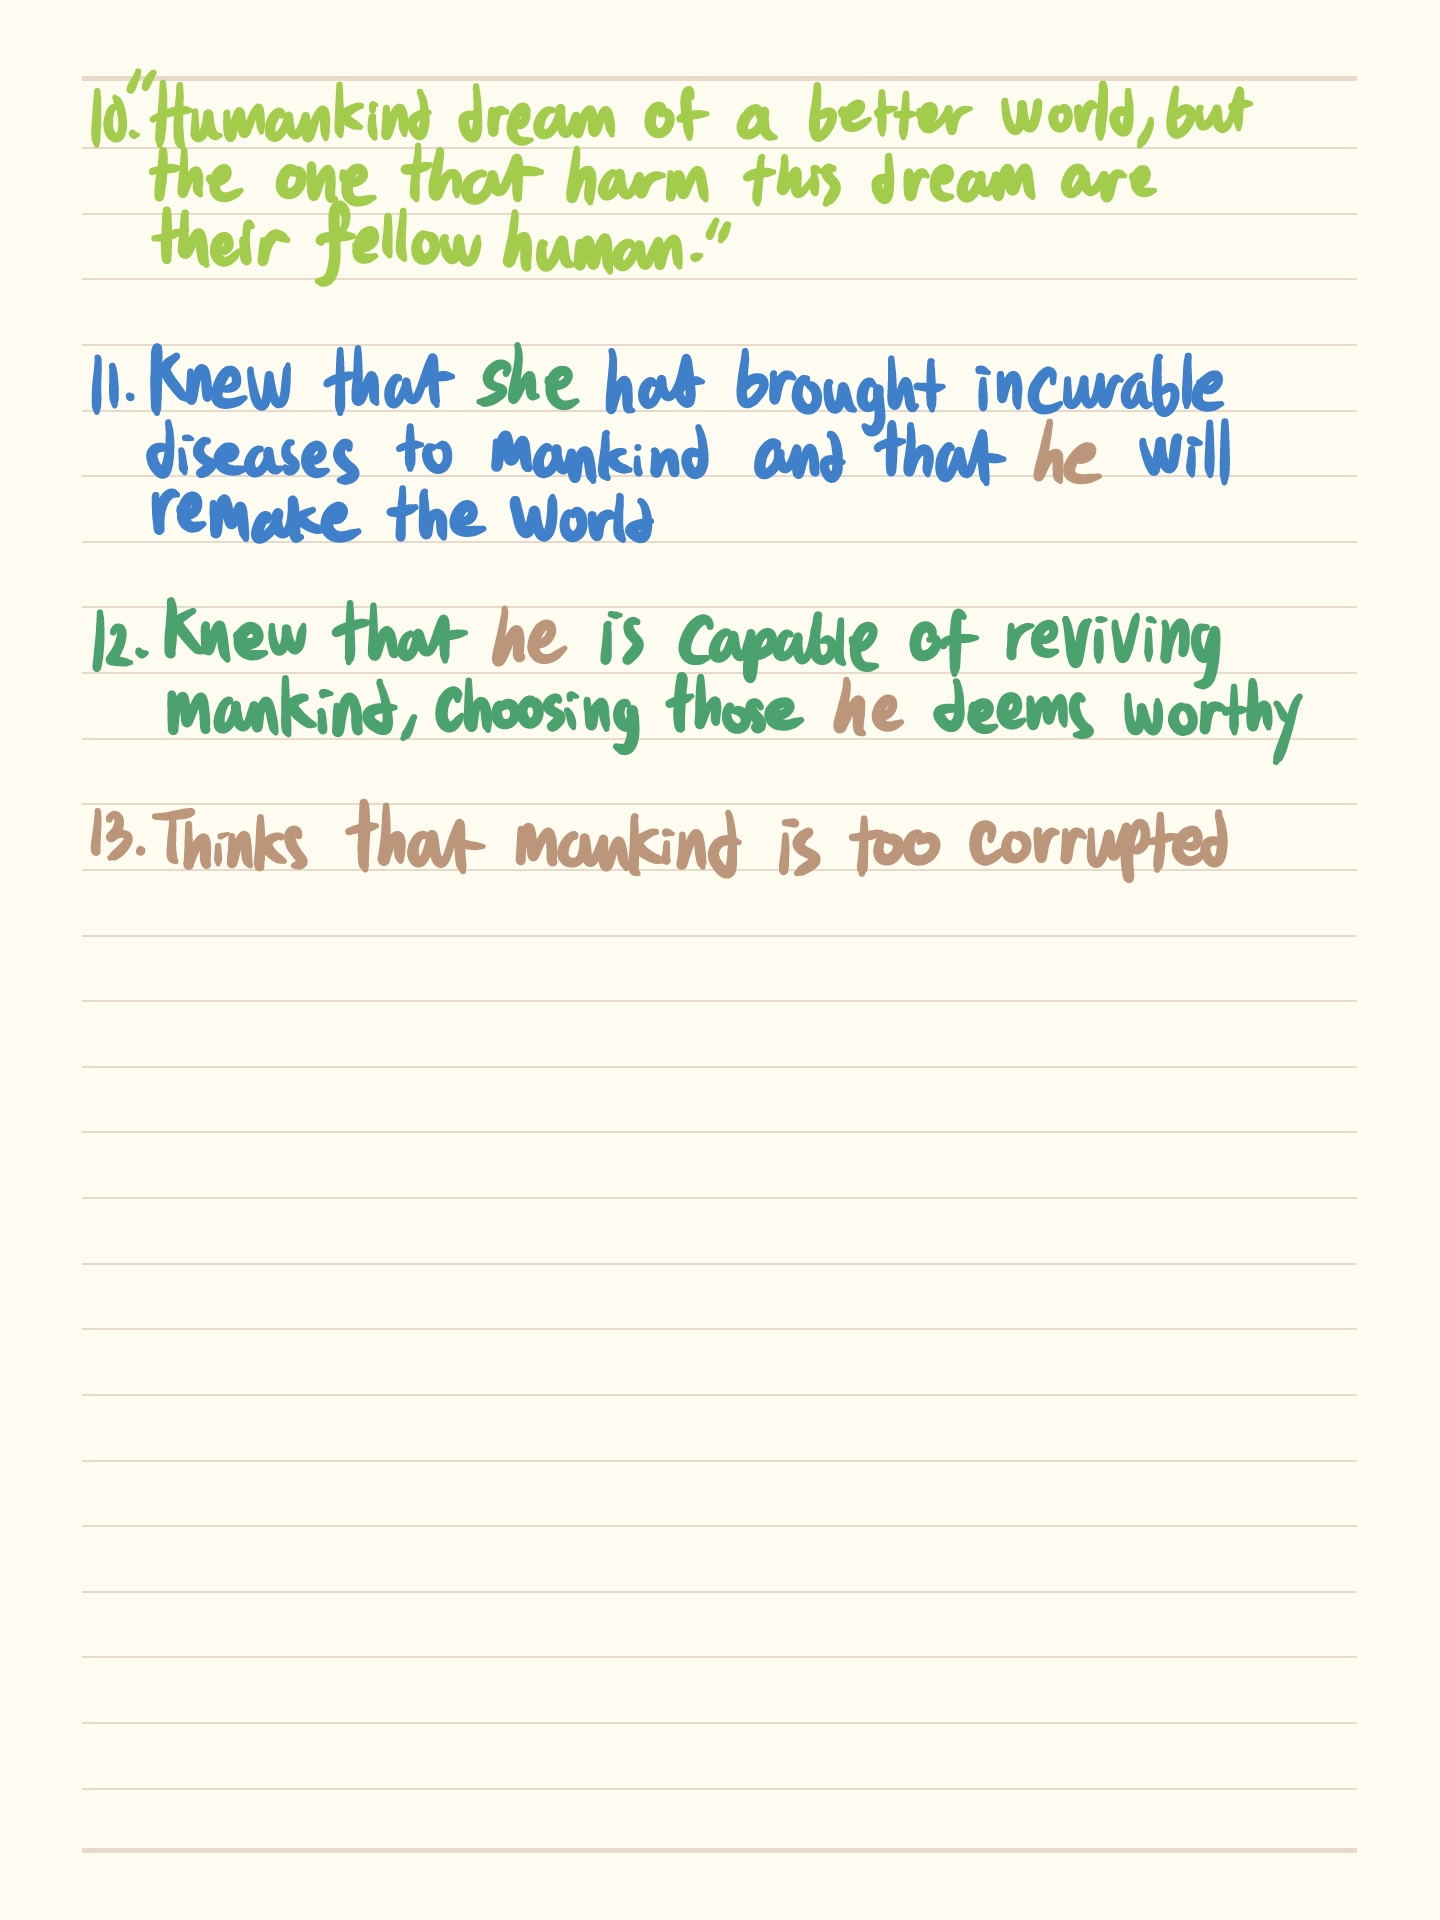 10. "Humankind dream of a better world, but
the one that harm this dream are
their fellow human."
11. Knew that she hat brought incurable
diseases to mankind and that he will
remake the world
12. Knew that he is capable of reviving
mankind, choosing those he deems worthy
13. Thinks that mankind is too corrupted